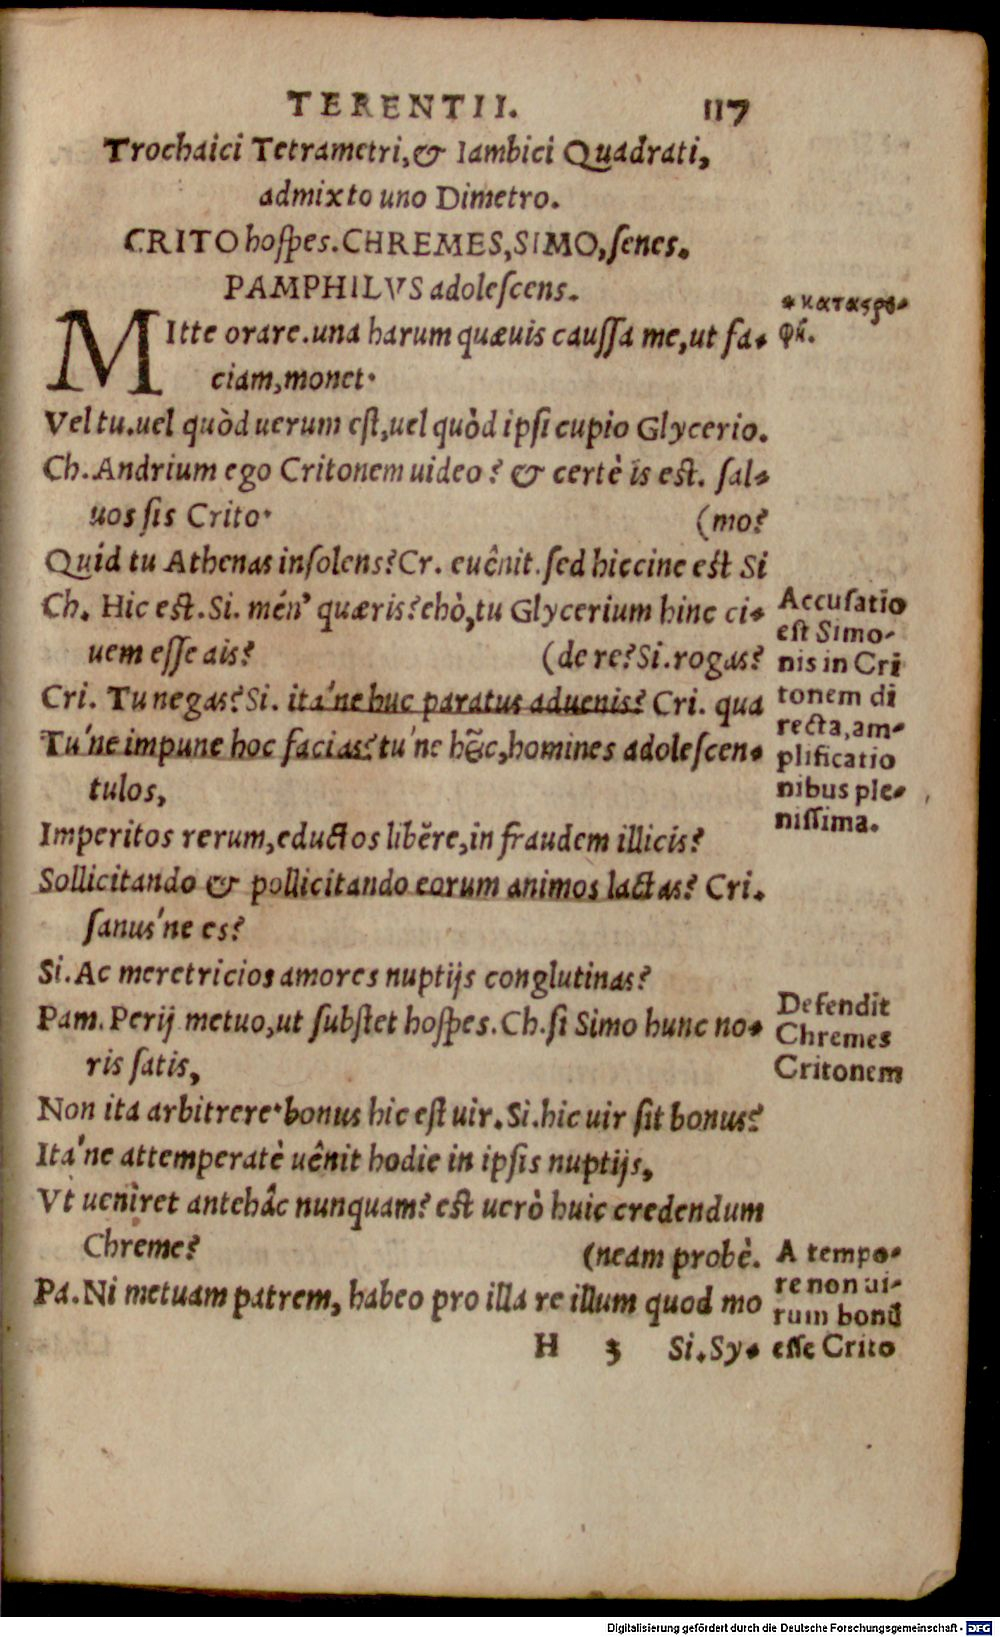 TERENTII. 117
Trochaici Tetrametri, & Iambici Quadrati,
admixto uno Dimetro.
CRITO hoſpes. CHREMES, SIMO, ſenes.
PAMPHILVS adoleſcens.
MItte orare. una harum quæuis cauſſa me, ut fa-
ciam, monet.
Vel tu. uel quòd uerum eſt, uel quòd ipſi cupio Glycerio.
Ch. Andrium ego Critonem uideo? & certè is eſt. ſal-
uos ſis Crito. (mo?
Quid tu Athenas inſolens? Cr. euênit. ſed hiccine eſt Si
Ch. Hic eſt. Si. mén' quæris? ehò, tu Glycerium hinc ci-
uem eſſe ais? (de re? Si. rogas?
Cri. Tu negas? Si. itá'ne huc paratus aduenis? Cri. qua
Tu'ne impune hoc facias? tu'ne hîc, homines adoleſcen-
tulos,
Imperitos rerum, eductos libĕre, in fraudem illicis?
Sollicitando & pollicitando eorum animos lactas? Cri.
ſanus'ne es?
Si. Ac meretricios amores nuptijs conglutinas?
Pam. Perij metuo, ut ſubſtet hoſpes. Ch. ſi Simo hunc no-
ris ſatis,
Non ita arbitrere. bonus hic eſt uir. Si. hic uir ſit bonus?
Itá'ne attemperatè uênit hodie in ipſis nuptijs,
Vt ueniret antehâc nunquam? eſt uerò huic credendum
Chreme? (neam probè.
Pa. Ni metuam patrem, habeo pro illa re illum quod mo
H 3 Si. Sy-
* καταςρο-
φή.
Accuſatio
eſt Simo-
nis in Cri
tonem di
recta, am-
plificatio
nibus ple-
niſſima.
Defendit
Chremes
Critonem
A tempo-
re non ui-
rum bonū
eſſe Crito
Digitalisierung gefördert durch die Deutsche Forschungsgemeinschaft - DFG